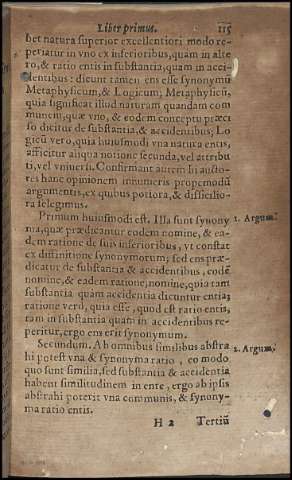 Liber primus. 115
bet natura superior excellentiori modo re-
periatur in vno ex inferioribus, quam in alte
ro, & ratio entis in substantia, quam in acci
dentibus: dicunt tamen ens esse synonymũ
Metaphysicum, & Logicum; Metaphysicũ,
quia significat illud naturam quandam com
munem, quæ vno, & eodem conceptu præci
so dicitur de substantia, & accidentibus; Lo
gicũ vero, quia huiusmodi vna natura entis,
afficitur aliqua notione secunda, vel attribu
ti, vel vniuersi. Confirmant autem hi aucto-
res hanc opinionem innumeris propemodũ
argumentis, ex quibus potiora, & difficilio-
ra selegimus.
Primum huiusmodi est. Illa sunt synony 1. Argum.
ma, quæ prædicantur eodem nomine, & ea-
dem ratione de suis inferioribus, vt constat
ex diffinitione synonymorum; sed ens præ-
dicatur de substantia & accidentibus, codẽ
nomine, & eadem ratione, nomine, quia tam
substantia quam accidentia dicuntur entia;
ratione vero, quia esse, quod est ratio entis,
tam in substantia quam in accidentibus re-
peritur, ergo ens erit synonymum.
Secundum. Ab omnibus similibus abstra 2. Argum.
hi potest vna & synonyma ratio, eo modo
quo sunt similia, sed substantia & accidentia
habent similitudinem in ente, ergo ab ipsis
abstrahi poterit vna communis, & synony-
ma ratio entis.
H 2 Tertiũ